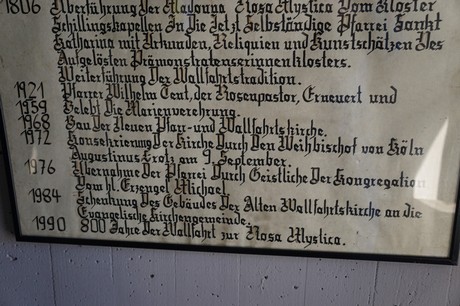 1806 Überführung Der Madonna "Rosa Mystica" Vom Kloster
Schillingskapellen In Die Jetzt Selbständige Pfarrei Sankt
Katharina mit Urkunden, Reliquien und Kunstschätzen Des
Aufgelösten Prämonstratenserinnenklosters.
Weiterführung Der Wallfahrtstradition.
1921 Pfarrer Wilhelm Tent, der Rosenpastor, Erneuert und
1959 Belebt Die Marienverehrung.
1968 Bau Der Neuen Pfarr- und Wallfahrtskirche.
1972 Konsekrierung Der Kirche Durch Den Weihbischof von Köln
Augustinus Frotz am 9. September.
1976 Übernahme Der Pfarrei Durch Geistliche Der Kongregation
Vom hl. Erzengel Michael
1984 Schenkung Des Gebäudes Der Alten Wallfahrtskirche an die
Evangelische Kirchengemeinde.
1990 800 Jahre Der Wallfahrt zur Rosa Mystica.